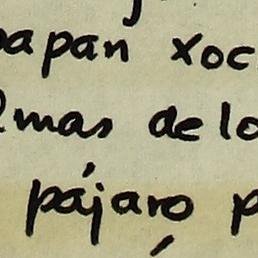 papan xoc
lmas de lo
pájaro p